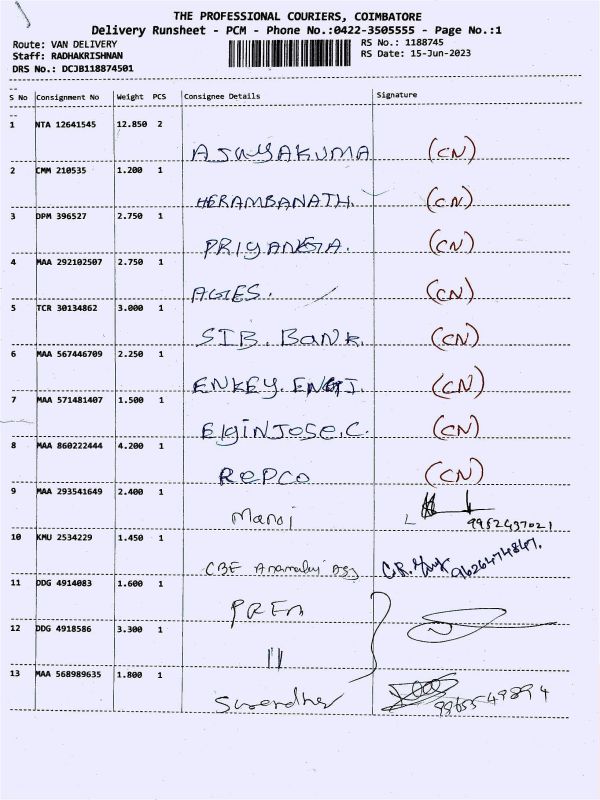 THE PROFESSIONAL COURIERS, COIMBATORE
Delivery Runsheet - PCM - Phone No.:0422-3505555 - Page No.:1
Route: VAN DELIVERY RS No.: 1188745
Staff: RADHAKRISHNAN RS Date: 15-Jun-2023
DRS No.: DCJB118874501
S No Consignment No Weight PCS Consignee Details Signature
1 NTA 12641545 12.850 2
AJAYAKUMA (CN)
2 CMM 210535 1.200 1
HERAMBANATH. (CN)
3 DPM 396527 2.750 1
PRIYANKA. (CN)
4 MAA 292102507 2.750 1
AGIES. (CN)
5 TCR 30134862 3.000 1
SIB. BANK. (CN)
6 MAA 567446709 2.250 1
ENKEY. ENGI. (CN)
7 MAA 571481407 1.500 1
ElginJose.C. (CN)
8 MAA 860222444 4.200 1
REPCO (CN)
9 MAA 293541649 2.400 1
Manoj 9952437021
10 KMU 2534229 1.450 1
CBE C.R. 9626474847.
11 DDG 4914083 1.600 1
PREM
12 DDG 4918586 3.300 1
11
13 MAA 568989635 1.800 1
Surendher 9865549894